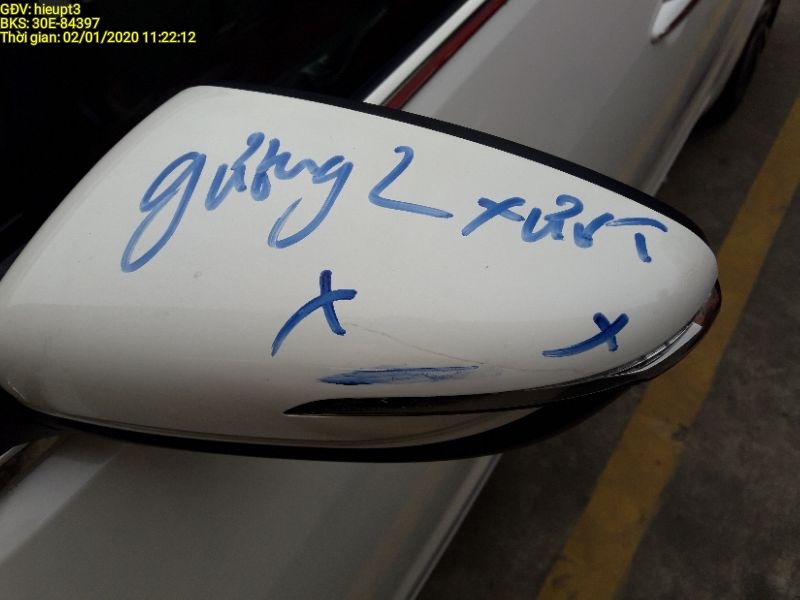 GĐV: hieupt3
BKS: 30E-84397
Thời gian: 02/01/2020 11:22:12
gương 2 xước
x x